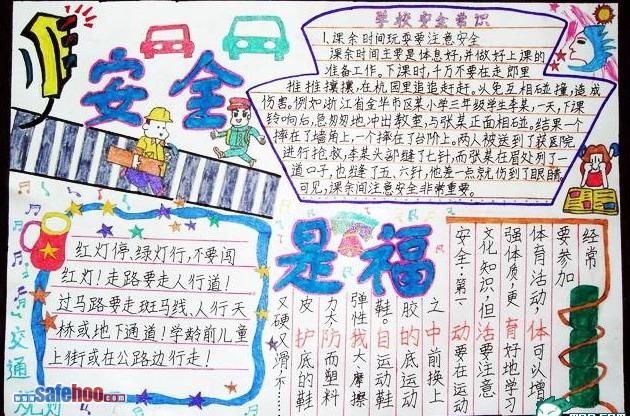 安全
学校安全常识
1.课余时间玩耍要注意安全
课余时间主要是休息好,并做好上课的
准备工作。下课时,千万不要在走郎里
推推攘攘,在机园里追追赶赶。以免互相碰撞,造成
伤害。例如浙江省金华市区某小学三年级学生李某,一天,下课
铃响后,急匆匆地冲出教室,与张某正面相碰。结果一个
摔在了墙角上,一个摔在了台阶上。两人被送到了医院
进行抢救,李某头部缝了七针,而张某在眉处列了一
道口子,也缝了五、六针,他差一点就伤到了眼睛
可见,课余间注意安全非常重要。
红灯停,绿灯行,不要闯
红灯!走路要走人行道!
过马路要走斑马线、人行天
桥或地下通道!学龄前儿童
上街或在公路边行走!
交通
规则
是福
经常
要参加
体育活动,体可以增
强体质,更育好地学习
文化知识,但活要注意
安全:第一动要在运动
之中前换上
胶的底运动
鞋。自运动鞋
弹性我大摩擦
力大防而塑料
皮护底的鞋
又硬又滑不
www.safehoo.com